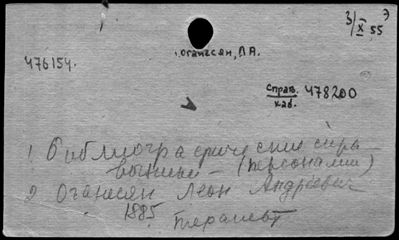 3/X 55 Э
Оганесян, Л А.
476154.
Справ. 478200
каб.
1 Библиографические спра-
вочные — (персоналии)
2 Оганесян Леон Андреевич
1885
терапевт